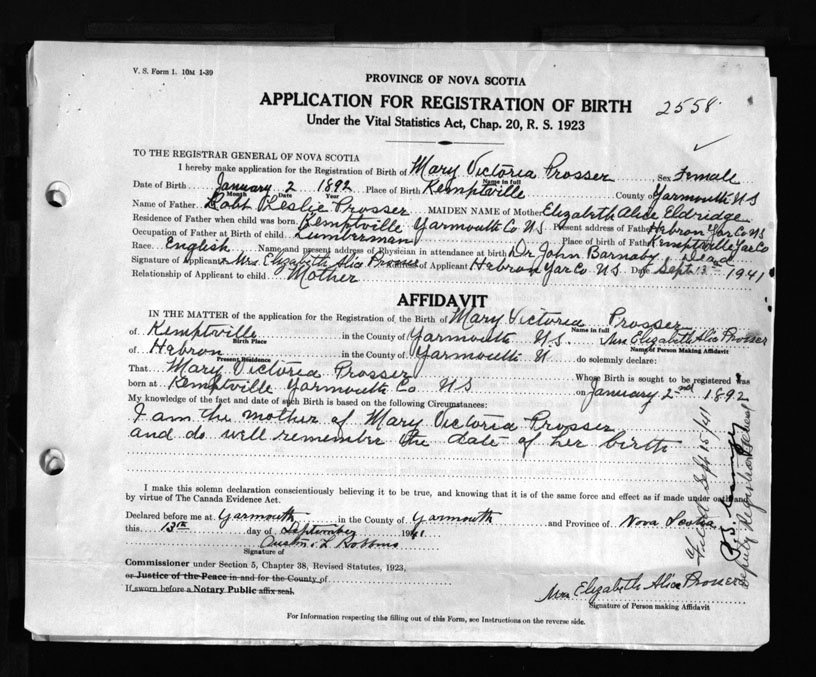 V. S. Form 1. 10M 1-39
PROVINCE OF NOVA SCOTIA
APPLICATION FOR REGISTRATION OF BIRTH 2558
Under the Vital Statistics Act, Chap. 20, R. S. 1923
TO THE REGISTRAR GENERAL OF NOVA SCOTIA
I hereby make application for the Registration of Birth of Mary Victoria Prosser Sex Female
Name in full
Date of Birth January 2 1892 Place of Birth Kemptville County of Yarmouth N S
Month Date Year
Name of Father Robt Leslie Prosser MAIDEN NAME of Mother Elizabeth Alice Eldridge
Residence of Father when child was born Kemptville Yarmouth Co N.S. Present address of Father Hebron Yar Co N S
Occupation of Father at Birth of child Lumberman Place of birth of Father Kemptville Yar Co
Race English Name and present address of Physician in attendance at birth Dr John Barnaby, Dead
Signature of applicant Mrs Elizabeth Alice Prosser of Applicant Hebron Yar Co N S Date Sept 13th 1941
Relationship of Applicant to child Mother
AFFIDAVIT
IN THE MATTER of the application for the Registration of the Birth of Mary Victoria Prosser
Name in full
of Kemptville in the County of Yarmouth N S. Mrs Elizabeth Alice Prosser
Birth Place Name of Person Making Affidavit
of Hebron in the County of Yarmouth N do solemnly declare:
Present Residence
That Mary Victoria Prosser Whose Birth is sought to be registered was
born at Kemptville Yarmouth Co N S on January 2nd 1892
My knowledge of the fact and date of such Birth is based on the following Circumstances:
I am the mother of Mary Victoria Prosser
and do well remember the date of her birth
I make this solemn declaration conscientiously believing it to be true, and knowing that it is of the same force and effect as if made under oath and
by virtue of The Canada Evidence Act.
Declared before me at Yarmouth in the County of Yarmouth and Province of Nova Scotia
this 13th day of September 1941
Austin L Robbins
Signature of
Commissioner under Section 5, Chapter 38, Revised Statutes, 1923,
or Justice of the Peace in and for the County of
If sworn before a Notary Public affix seal.
Mrs Elizabeth Alice Prosser
Signature of Person making Affidavit
For Information respecting the filling out of this Form, see Instructions on the reverse side.
Filed Sept 15/41
Deputy Registrar General